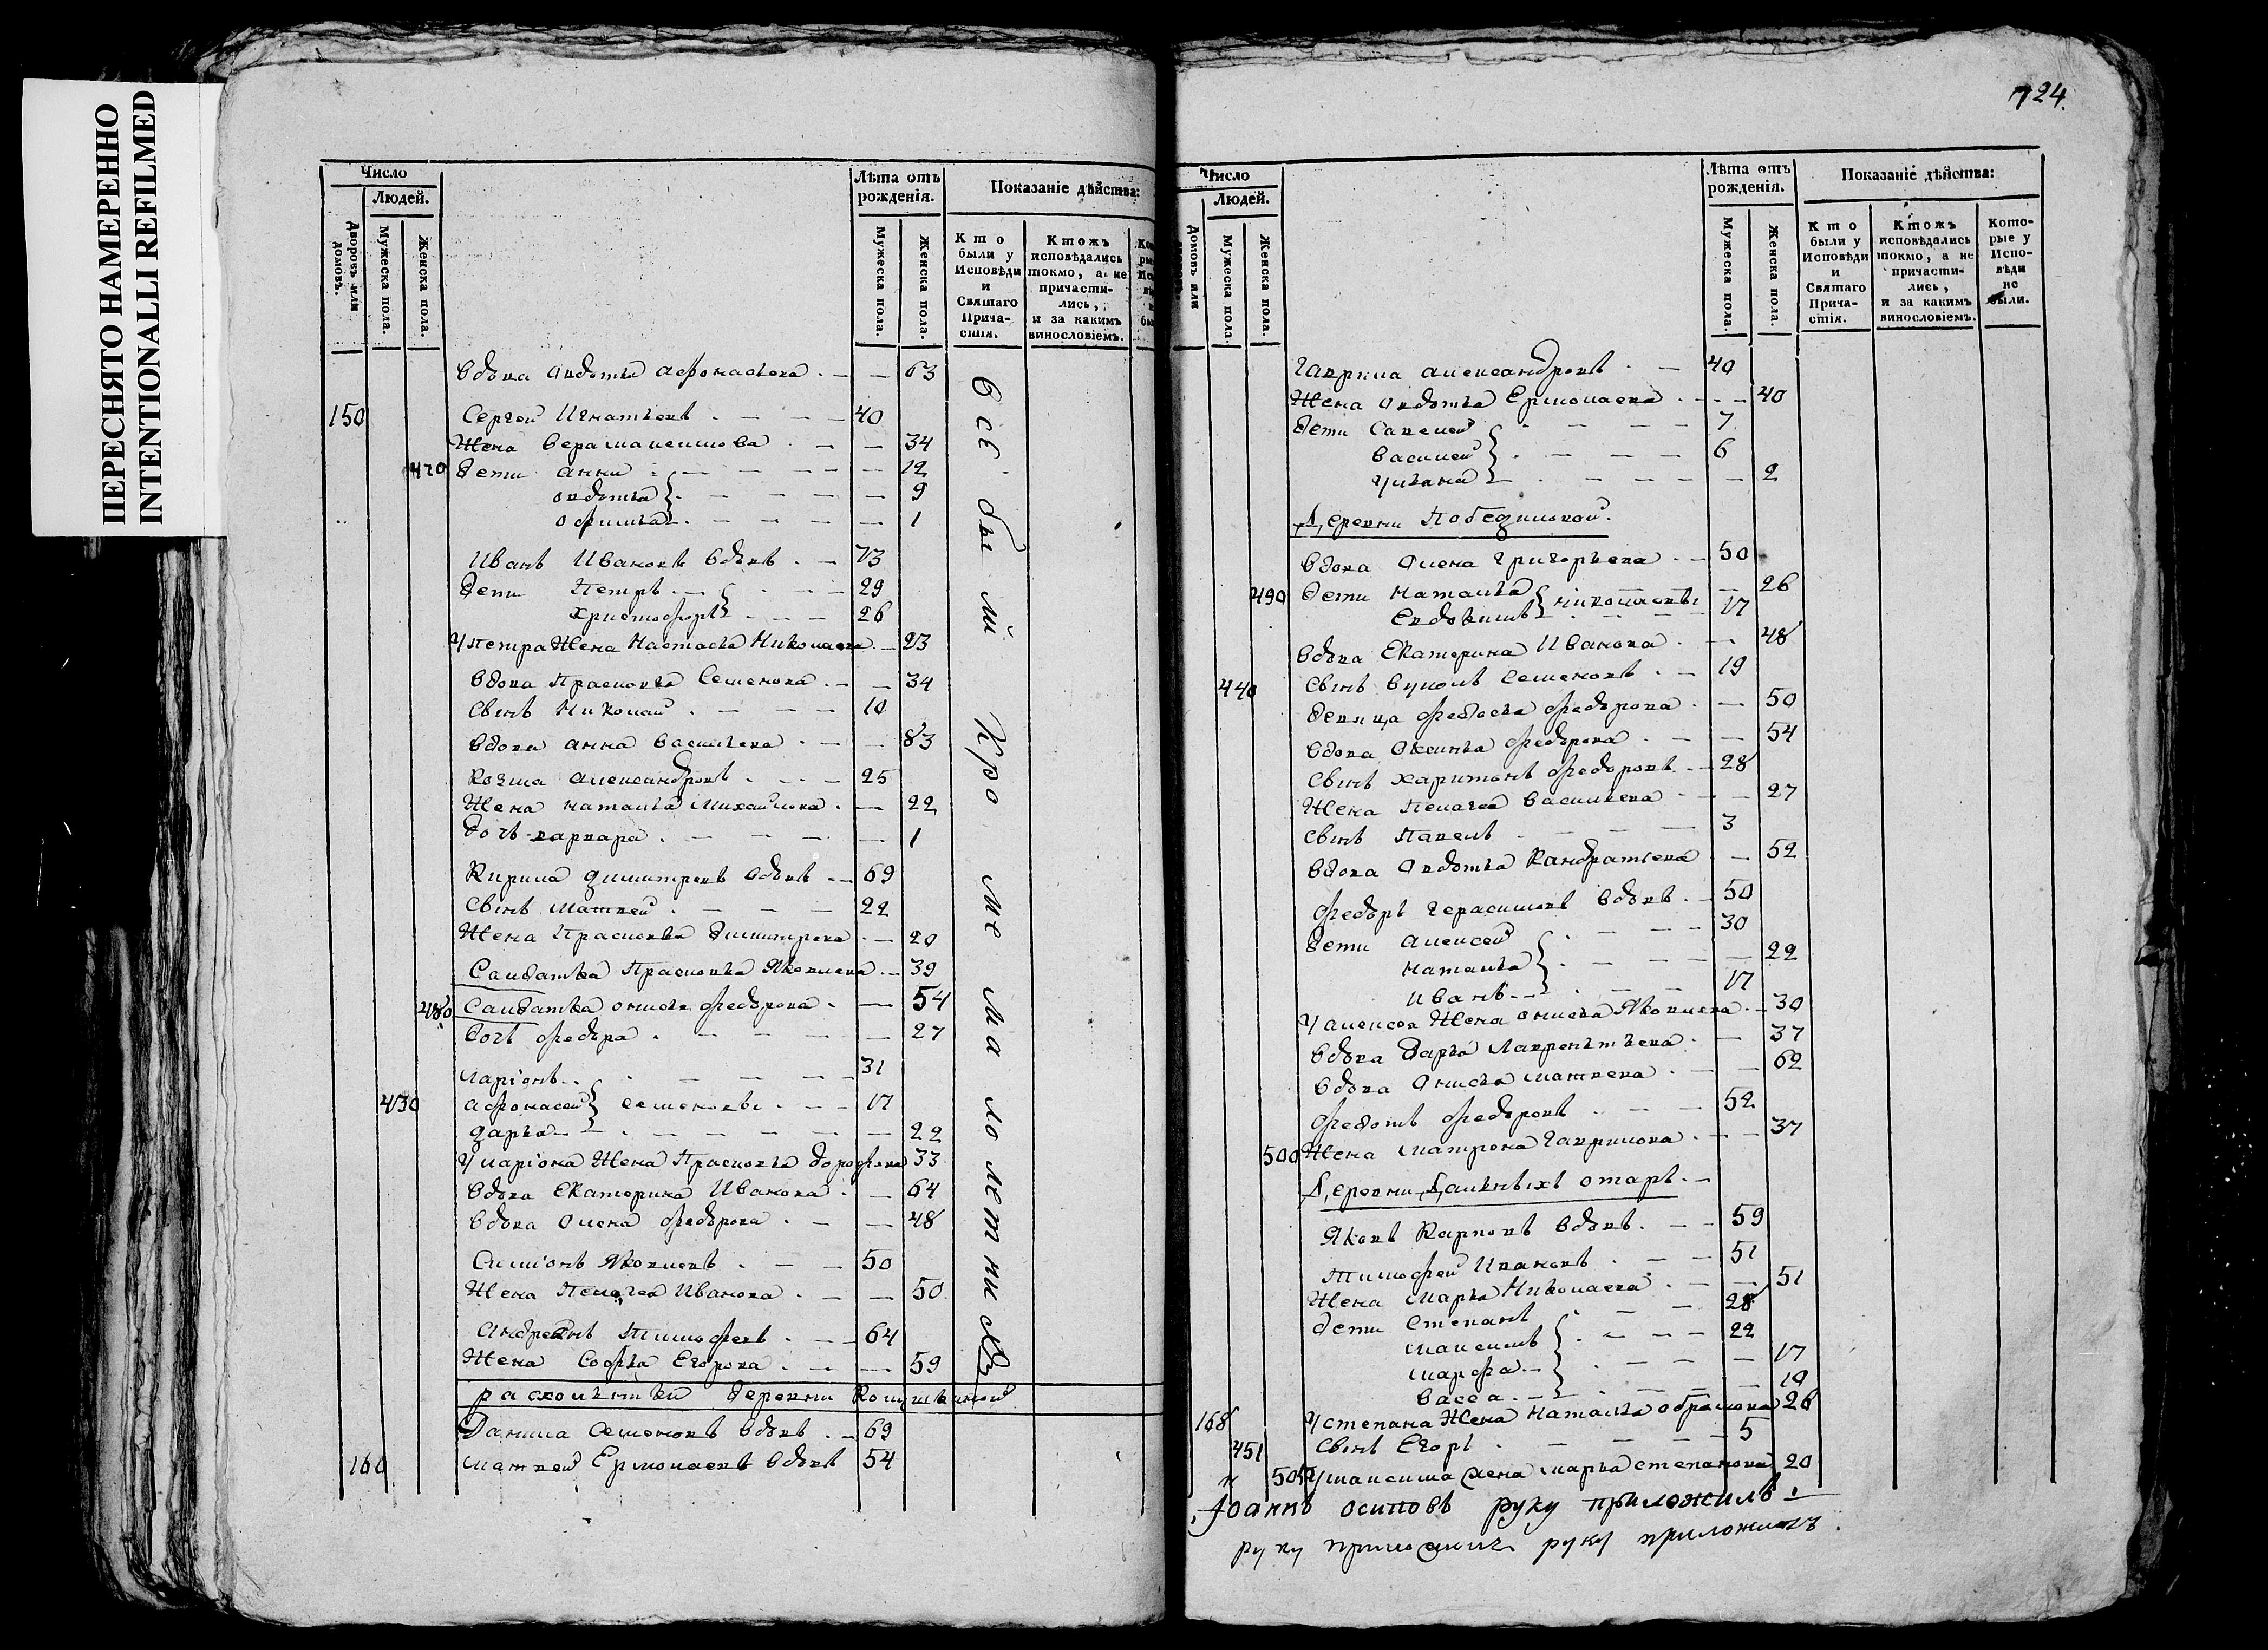 ПЕРЕСНЯТО НАМЕРЕННО
INTENTIONALLI REFILMED
Число
Людей.
Дворовъ или домовъ.
Мужеска пола.
Женска пола.
Лѣта отъ рожденія.
Мужеска пола.
Женска пола.
Показаніе дѣйства:
Кто были у Исповѣди и Святаго Прича-стія.
Ктожъ исповѣдались токмо, а не причасти-лись, и за какимъ винословіемъ.
вдова Авдотья Афонасьева 63
150 Сергей Игнатьевъ 40
Жена Вера Максимова 34
470 дети Анна 12
Овдотья 9
Офимья 1
Иванъ Ивановъ вдовъ 73
дети Петръ 29
Христофоръ 26
У Петра Жена Настасья Николаева 23
вдова Прасковья Семенова 34
Сынъ Николай 10
вдова Анна Васильева 83
Козма Александровъ 25
Жена Наталья Михайлова 22
дочь варвара 1
Кирила Димитревъ вдовъ 69
Сынъ Матвей 22
Жена Прасковья Димитрева 20
Салдатка Прасковья Яковлева 39
480 Салдатка Онисья Федорова 54
Дочь Федора 27
Ларіонъ 31
430 Афонасей Семеновы 17
Дарья 22
У Ларіона Жена Прасковья дорофева 33
вдова Екатерина Иванова 64
вдова Олена Федорова 48
Симіонъ Яковлевъ 50
Жена Пелагея Иванова 50
Андреянъ Тимофеевъ 64
Жена Софья Егорова 59
раскольники деревни
Данила Семеновъ вдовъ 69
160 Матвей Ермолаевъ вдовъ 54
всѣ были кроме малолетнихъ
724.
Число
Людей.
Домовъ или дворовъ.
Мужеска пола
Женска пола.
Лѣта отъ рожденія.
Мужеска пола.
Женска пола.
Показаніе дѣйства:
Кто были у Исповѣди и Святаго Прича-стія.
Ктожъ исповѣдались токмо, а не причасти-лись, и за какимъ винословіемъ.
Кото-рые у Испо-вѣди не были.
Гаврила Александровъ 40
Жена Овдотья Ермолаева 40
дети Савелей 7
Василей 6
Ульяна 2
Деревни
вдова Олена Григорьева 50
490 дети Наталья Николаевы 26
Евдокимъ 17
вдова Екатерина Иванова 48
440 Сынъ Вуколъ Семеновъ 19
девица Федосья Федорова 50
вдова Оксинья Федорова 54
Сынъ Харитонъ Федоровъ 28
Жена Пелагея Васильева 27
Сынъ Павелъ 3
вдова Овдотья Кандратьева 52
Федоръ Герасимовъ вдовъ 50
дети Алексей 30
Наталья 22
Иванъ 17
У Алексея Жена Онисья Яковлева 30
вдова Дарья Лаврентьева 37
вдова Анисья Матвева 62
Федотъ Федоровъ 52
500 Жена Матрона Гаврилова 37
Деревни Дальныхъ отаръ
Яковъ Карповъ вдовъ 59
Тимофей Ивановъ 51
Жена Марья Николаева 51
дети Степанъ 28
Максимъ 22
Марфа 17
Васса 19
У Степана Жена Наталья Обрамова 26
168 451 Сынъ Егоръ 5
У Максима Жена Марья Степанова 20
Іоаннъ осиповъ руку приложилъ
руку приложилъ руку приложилъ.